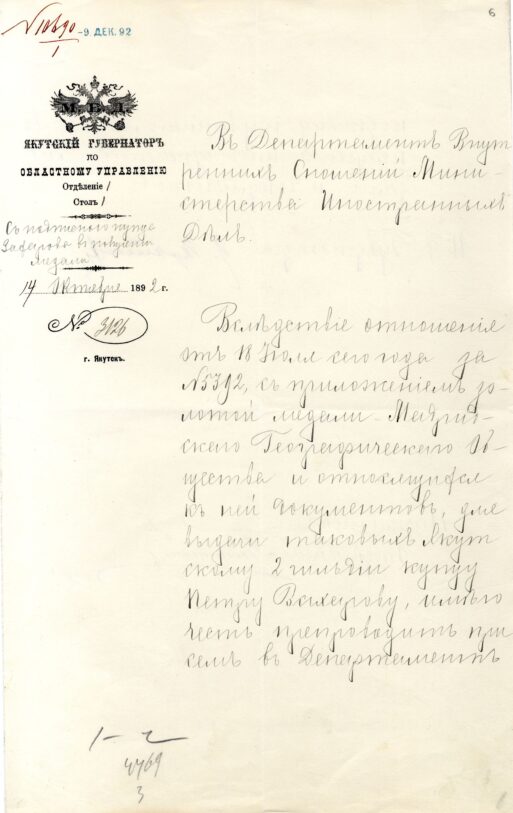 6
N 10690
1
-9 ДЕК. 92
М. В. Д.
ЯКУТСКІЙ ГУБЕРНАТОРЪ
ПО
ОБЛАСТНОМУ УПРАВЛЕНІЮ
Отдѣленіе /
Столъ /
Съ подпиской купца
Захерова въ полученіи
медали
14 Октября 1892 г.
№ 3126
г. Якутскъ.
Въ Департаментъ Внут
реннихъ Сношеній Мини-
стерства Иностранныхъ
Дѣлъ.
Вслѣдствіе отношенія
отъ 18 Іюля сего года за
№5392, съ приложеніемъ зо-
лотой медали Мадрит-
скаго Географическаго Об-
щества и относящихся
къ ней документовъ, для
выдачи таковыхъ Якут
скому 2 гильдіи купцу
Петру Вахерову, имѣю
честь препроводить при
семъ въ Департаментъ
4769
3